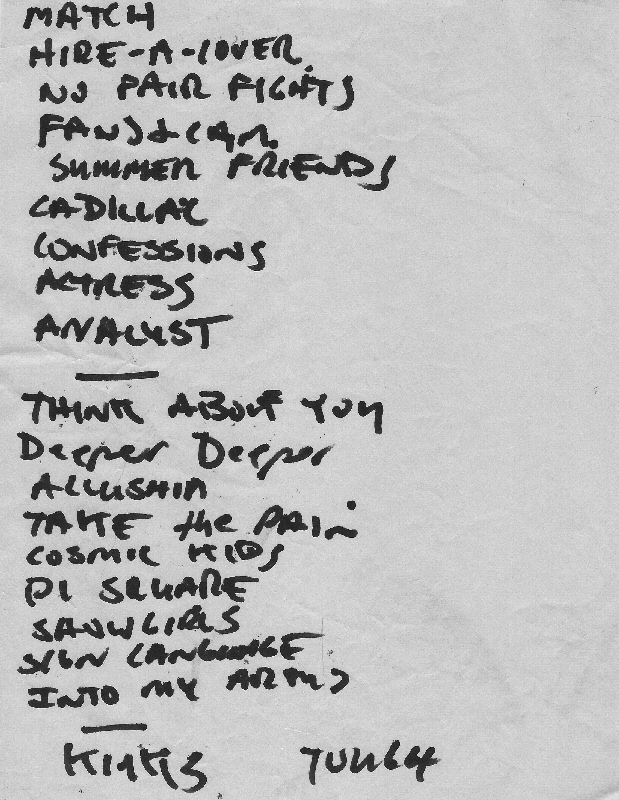 MATCH
HIRE-A-LOVER
NO FAIR FIGHTS
FANS & CAM.
SUMMER FRIENDS
CADILLAC
CONFESSIONS
ACTRESS
ANALYST
THINK ABOUT YOU
Deeper Deeper
ALLUSHIA
TAKE the PAIN
COSMIC KIDS
PI SQUARE
SNOWGIRLS
SIGN LANGUAGE
INTO MY ARMS
KINKS